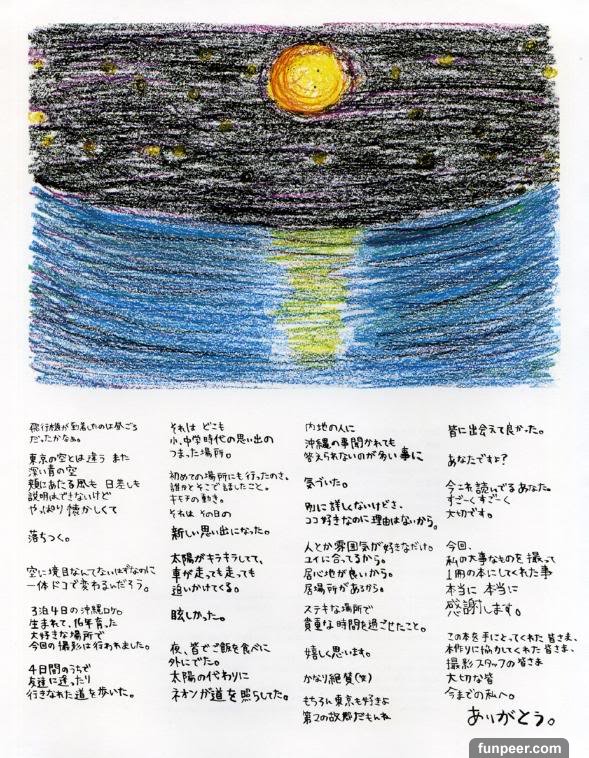 飛行機が到着したのは昼ごろ
だったかなぁ。
東京の空とは違う また
深い青の空
頬にあたる風も 日差しも
説明はできないけど
やっぱり懐かしくて
落ちつく。
空に境目なんてないはずなのに
一体ドコで変わるんだろう。
3泊4日の沖縄ロケ。
生まれて、16年育った
大好きな場所で
今回の撮影は行われました。
4日間のうちで
友達に逢ったり
行きなれた道を歩いた。
それは どこも
小、中学時代の思い出の
つまった場所。
初めての場所にも行ったのさ、
誰かとそこで話したこと。
キモチの動き。
それは その日の
新しい思い出になった。
太陽がキラキラしてて、
車が走っても走っても
追いかけてくる。
眩しかった。
夜、皆でご飯を食べに
外にでた。
太陽の代わりに
ネオンが道を照らしてた。
内地の人に
沖縄の事聞かれても
答えられないのが多い事に
気づいた。
別に詳しくないけどさ、
ココ好きなのに理由はないから。
人とか雰囲気が好きなだけ。
ユイに合ってるから。
居心地が良いから。
居場所があるから。
ステキな場所で
貴重な時間を過ごせたこと。
嬉しく思います。
かなり絶賛(笑)
もちろん東京も好きよ
第2の故郷だもんね
皆に出会えて良かった。
あなたですよ?
今これ読んでるあなた。
すごーくすごーく
大切です。
今回、
私の大事なものを撮って
1冊の本にしてくれた事
本当に 本当に
感謝します。
この本を手にとってくれた 皆さま、
本作りに協力してくれた 皆さま、
撮影スタッフの皆さま
大切な皆
今までの私へ。
ありがとう。
funpeer.com